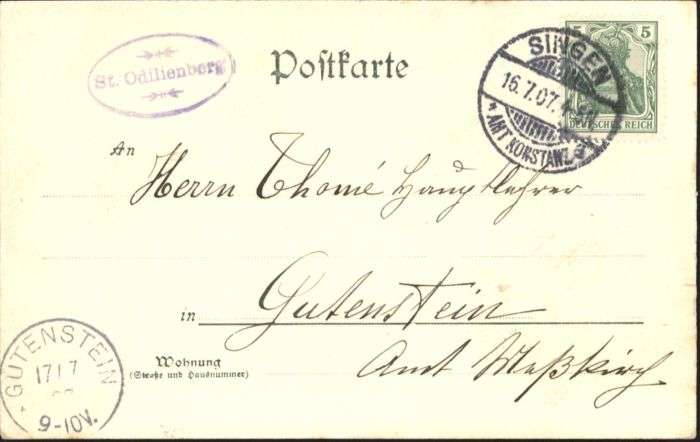 St. Odilienberg
Postkarte
SINGEN
16.7.07.4-5N
* AMT KONSTANZ
5 5
DEUTSCHES REICH
An
Herrn Thomé Hauptlehrer
in Gutenstein
Wohnung
(Straße und Hausnummer)
Amt Meßkirch
GUTENSTEIN
17 7
9-10V.